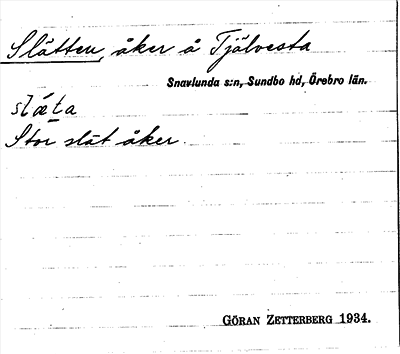 Slätten, åker å Tjälvesta
Snavlunda s:n, Sundbo hd, Örebro län.
slæt̠a
Stor slät åker.
GÖRAN ZETTERBERG 1934.